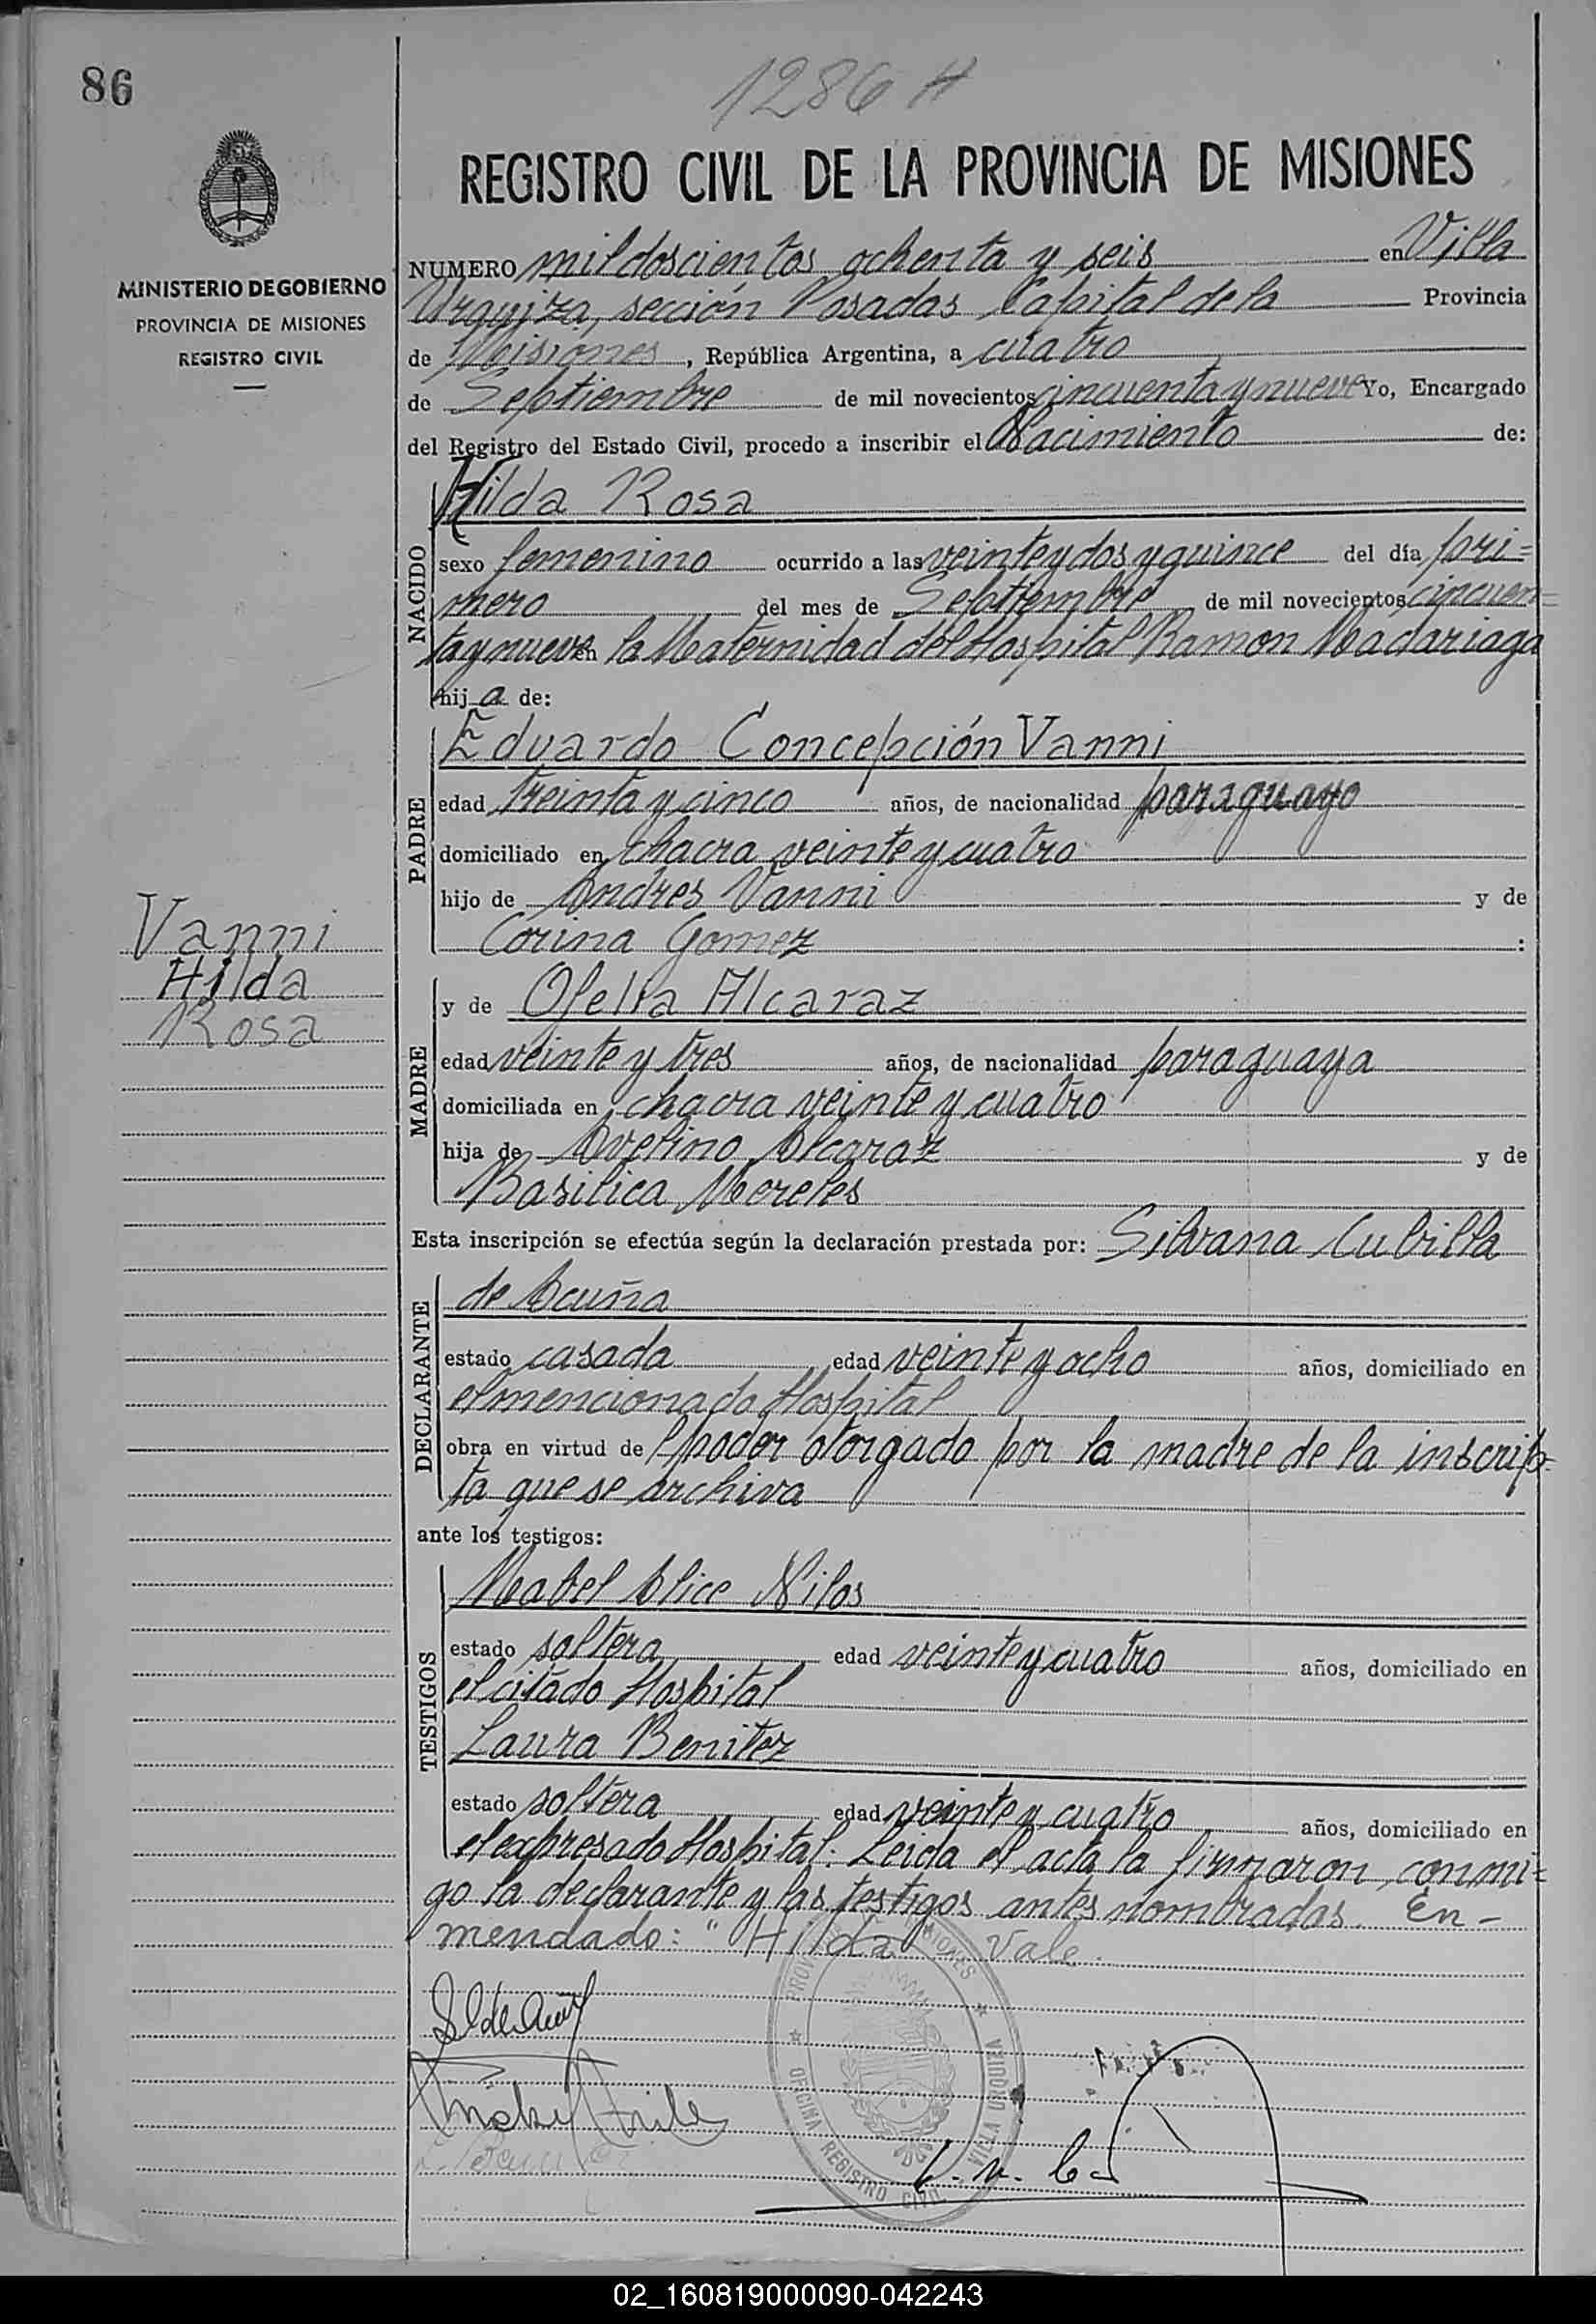 86
1286 H
REGISTRO CIVIL DE LA PROVINCIA DE MISIONES
MINISTERIO DE GOBIERNO
PROVINCIA DE MISIONES
REGISTRO CIVIL
NUMERO mil doscientos ochenta y seis en Villa
Urquiza, sección Posadas Capital de la Provincia
de Misiones, República Argentina, a cuatro
de Septiembre de mil novecientos cincuenta y nueve Yo, Encargado
del Registro del Estado Civil, procedo a inscribir el Nacimiento de:
NACIDO
Hilda Rosa
sexo femenino ocurrido a las veinte y dos y quince del día pri=
mero del mes de Septiembre de mil novecientos cincuen=
ta y nueve en la Maternidad del Hospital Ramon Madariaga
hija de:
PADRE
Eduardo Concepción Vanni
edad treinta y cinco años, de nacionalidad paraguayo
domiciliado en chacra veinte y cuatro
hijo de Andres Vanni y de
Corina Gomez :
Vanni
Hilda
Rosa
MADRE
y de Ofelia Alcaraz
edad veinte y tres años, de nacionalidad paraguaya
domiciliada en chacra veinte y cuatro
hija de Avelino Alcaraz y de
Basilica Mereles
Esta inscripción se efectúa según la declaración prestada por: Silvana Cubilla
DECLARANTE
de Acuña
estado casada edad veinte y ocho años, domiciliado en
el mencionado Hospital
obra en virtud de poder otorgado por la madre de la inscrip=
ta que se archiva
ante los testigos:
TESTIGOS
Mabel Alice Nilos
estado soltera edad veinte y cuatro años, domiciliado en
el citado Hospital
Laura Benitez
estado soltera edad veinte y cuatro años, domiciliado en
el expresado Hospital. Leida el acta la firmaron conmi=
go la declarante y las testigos antes nombradas. En-
mendado: "Hilda Vale.
PROVINCIA DE MISIONES
OFICINA REGISTRO CIVIL
VILLA URQUIZA
02_160819000090-042243